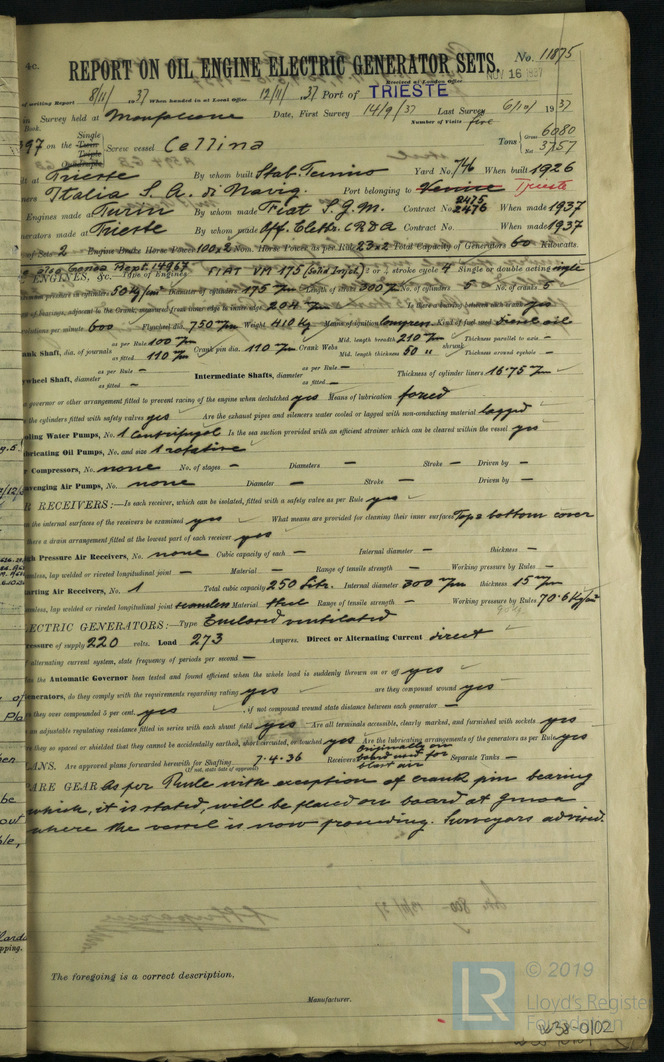 4c.
REPORT ON OIL ENGINE ELECTRIC GENERATOR SETS. No. 11875
Received at London Office NOV 16 1937
of writing Report 8/11/ 1937 When handed in at Local Office 12/11/ 37 Port of TRIESTE
Survey held at Monfalcone Date, First Survey 14/9/37 Last Survey 6/10/ 1937
Book. Number of Visits five
97 on the Single Twin Triple Quadruple Screw vessel Cellina Tons Gross 6080 Net 3757
at Trieste By whom built Stab. Tecnico Yard No. 76 When built 1926
ners Italia S.A. di Navig. Port belonging to Venice Trieste
Engines made at Turin By whom made Fiat S.G.M. Contract No. 2475 2476 When made 1937
nerators made at Trieste By whom made Off. Elettr. CRDA Contract No. When made 1937
of Sets 2 Engine Brake Horse Power 100x2 Nom. Horse Power as per Rule 23x2 Total Capacity of Generators 60 Kilowatts.
ENGINES, &c. Type of Engines FIAT VM 175 (Solid Inject.) 2 or 4 stroke cycle 4 Single or double acting single
pressure in cylinders 50 Kg/cm² Diameter of cylinders 175 m/m Length of stroke 300 m/m No. of cylinders 5 No. of cranks 5
of bearings, adjacent to the Crank, measured from inner edge to inner edge 204 m/m Is there a bearing between each crank yes
olutions per minute 600 Flywheel dia. 750 m/m Weight 410 Kg Means of ignition compress. Kind of fuel used diesel oil
ank Shaft, dia. of journals as per Rule 100 m/m as fitted 110 m/m Crank pin dia. 110 m/m Crank Webs Mid. length breadth 210 m/m Mid. length thickness 50 " shrunk Thickness parallel to axis – Thickness around eyehole –
wheel Shaft, diameter as per Rule – as fitted – Intermediate Shafts, diameter as per Rule – as fitted – Thickness of cylinder liners 16.75 m/m
a governor or other arrangement fitted to prevent racing of the engine when declutched yes Means of lubrication forced
the cylinders fitted with safety valves yes Are the exhaust pipes and silencers water cooled or lagged with non-conducting material lagged
ling Water Pumps, No. 1 Centrifugal Is the sea suction provided with an efficient strainer which can be cleared within the vessel yes
bricating Oil Pumps, No. and size 1 rotative
Compressors, No. none No. of stages – Diameters – Stroke – Driven by –
venging Air Pumps, No. none Diameter – Stroke – Driven by –
RECEIVERS:—Is each receiver, which can be isolated, fitted with a safety valve as per Rule yes
the internal surfaces of the receivers be examined yes What means are provided for cleaning their inner surfaces Top & bottom cover
there a drain arrangement fitted at the lowest part of each receiver yes
gh Pressure Air Receivers, No. none Cubic capacity of each – Internal diameter – thickness –
mless, lap welded or riveted longitudinal joint – Material – Range of tensile strength – Working pressure by Rules –
arting Air Receivers, No. 1 Total cubic capacity 250 Lits. Internal diameter 300 m/m thickness 15 m/m
mless, lap welded or riveted longitudinal joint seamless Material steel Range of tensile strength – Working pressure by Rules 70.6 Kg/cm²
ECTRIC GENERATORS:—Type Enclosed ventilated
ressure of supply 220 volts. Load 273 Amperes. Direct or Alternating Current direct
alternating current system, state frequency of periods per second –
as the Automatic Governor been tested and found efficient when the whole load is suddenly thrown on or off yes
enerators, do they comply with the requirements regarding rating yes are they compound wound yes
they over compounded 5 per cent. yes, if not compound wound state distance between each generator –
an adjustable regulating resistance fitted in series with each shunt field yes Are all terminals accessible, clearly marked, and furnished with sockets yes
they so spaced or shielded that they cannot be accidentally earthed, short circuited, or touched yes Are the lubricating arrangements of the generators as per Rule yes
LANS. Are approved plans forwarded herewith for Shafting 7.4.36 Receivers Originally on board used for blast air Separate Tanks –
(If not, state date of approval)
PARE GEAR As per Rule with exception of crank pin bearing
which, it is stated, will be placed on board at Genoa
where the vessel is now proceeding. Surveyors advised.
The foregoing is a correct description,
Manufacturer.
LR © 2019
Lloyd's Register
Foundation
W38-0102